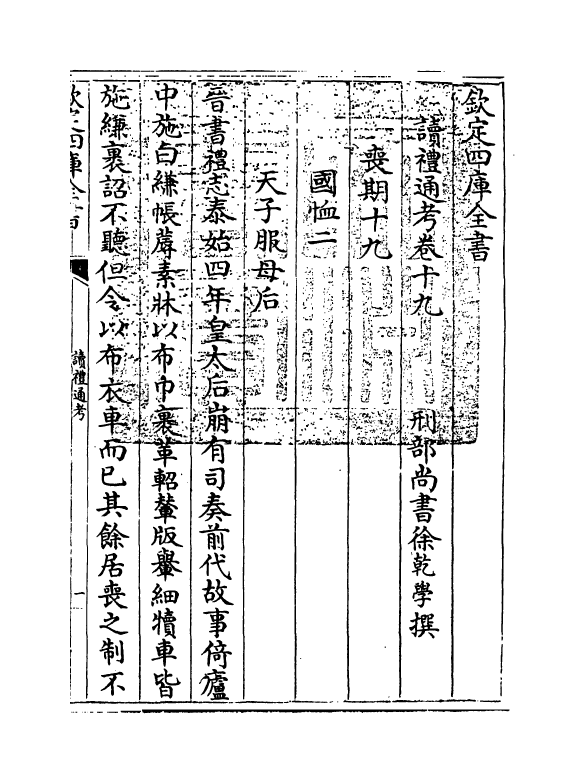 欽定四庫全書
讀禮通考卷十九　刑部尚書徐乾學撰
喪期十九
國恤二
天子服母后
晉書禮志泰始四年皇太后崩有司奏前代故事倚廬
中施白縑帳蓐素牀以布巾裹革軺輦版轝細犢車皆
施縑裹詔不聽但令以布衣車而已其餘居喪之制不
欽定四庫全書
讀禮通考
一